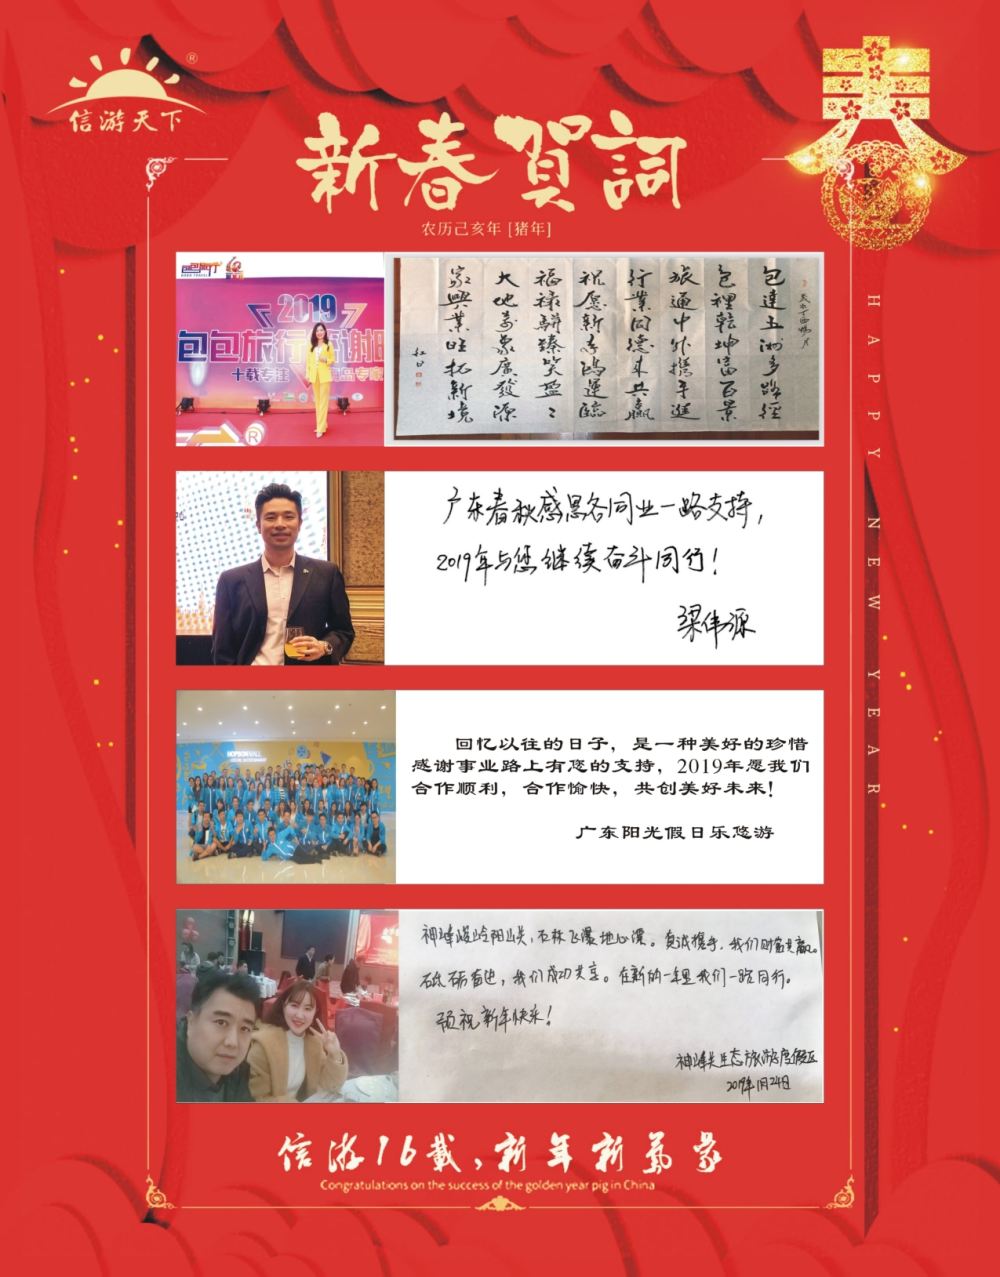 信游天下
®
春
新春贺詞
农历己亥年 [猪年]
HAPPY NEW YEAR
包包旅行
2019
包包旅行
十载专注
岛专家
®
包達五洲多路經
包裡乾坤富百景
旅通中外攜手進
行業同德共贏
祝愿新春鴻運臨
福祿駢臻笑盈盈
大地萬象廣發源
家興業旺拓新境
广东春秋感恩各同业一路支持，
2019年与您继续奋斗同行！
梁伟源
HOPSON MALL
回忆以往的日子，是一种美好的珍惜
感谢事业路上有您的支持，2019年愿我们
合作顺利，合作愉快，共创美好未来！
广东阳光假日乐悠游
神峰峻岭阳山关，石林飞瀑地心漂。真诚携手，我们财富共赢。
砥砺奋进，我们成功共享。在新的一年里我们一路同行。
预祝新年快乐！
神峰关生态旅游度假区
2019年1月24日
信游16载，新年新氣象
Congratulations on the success of the golden year pig in China